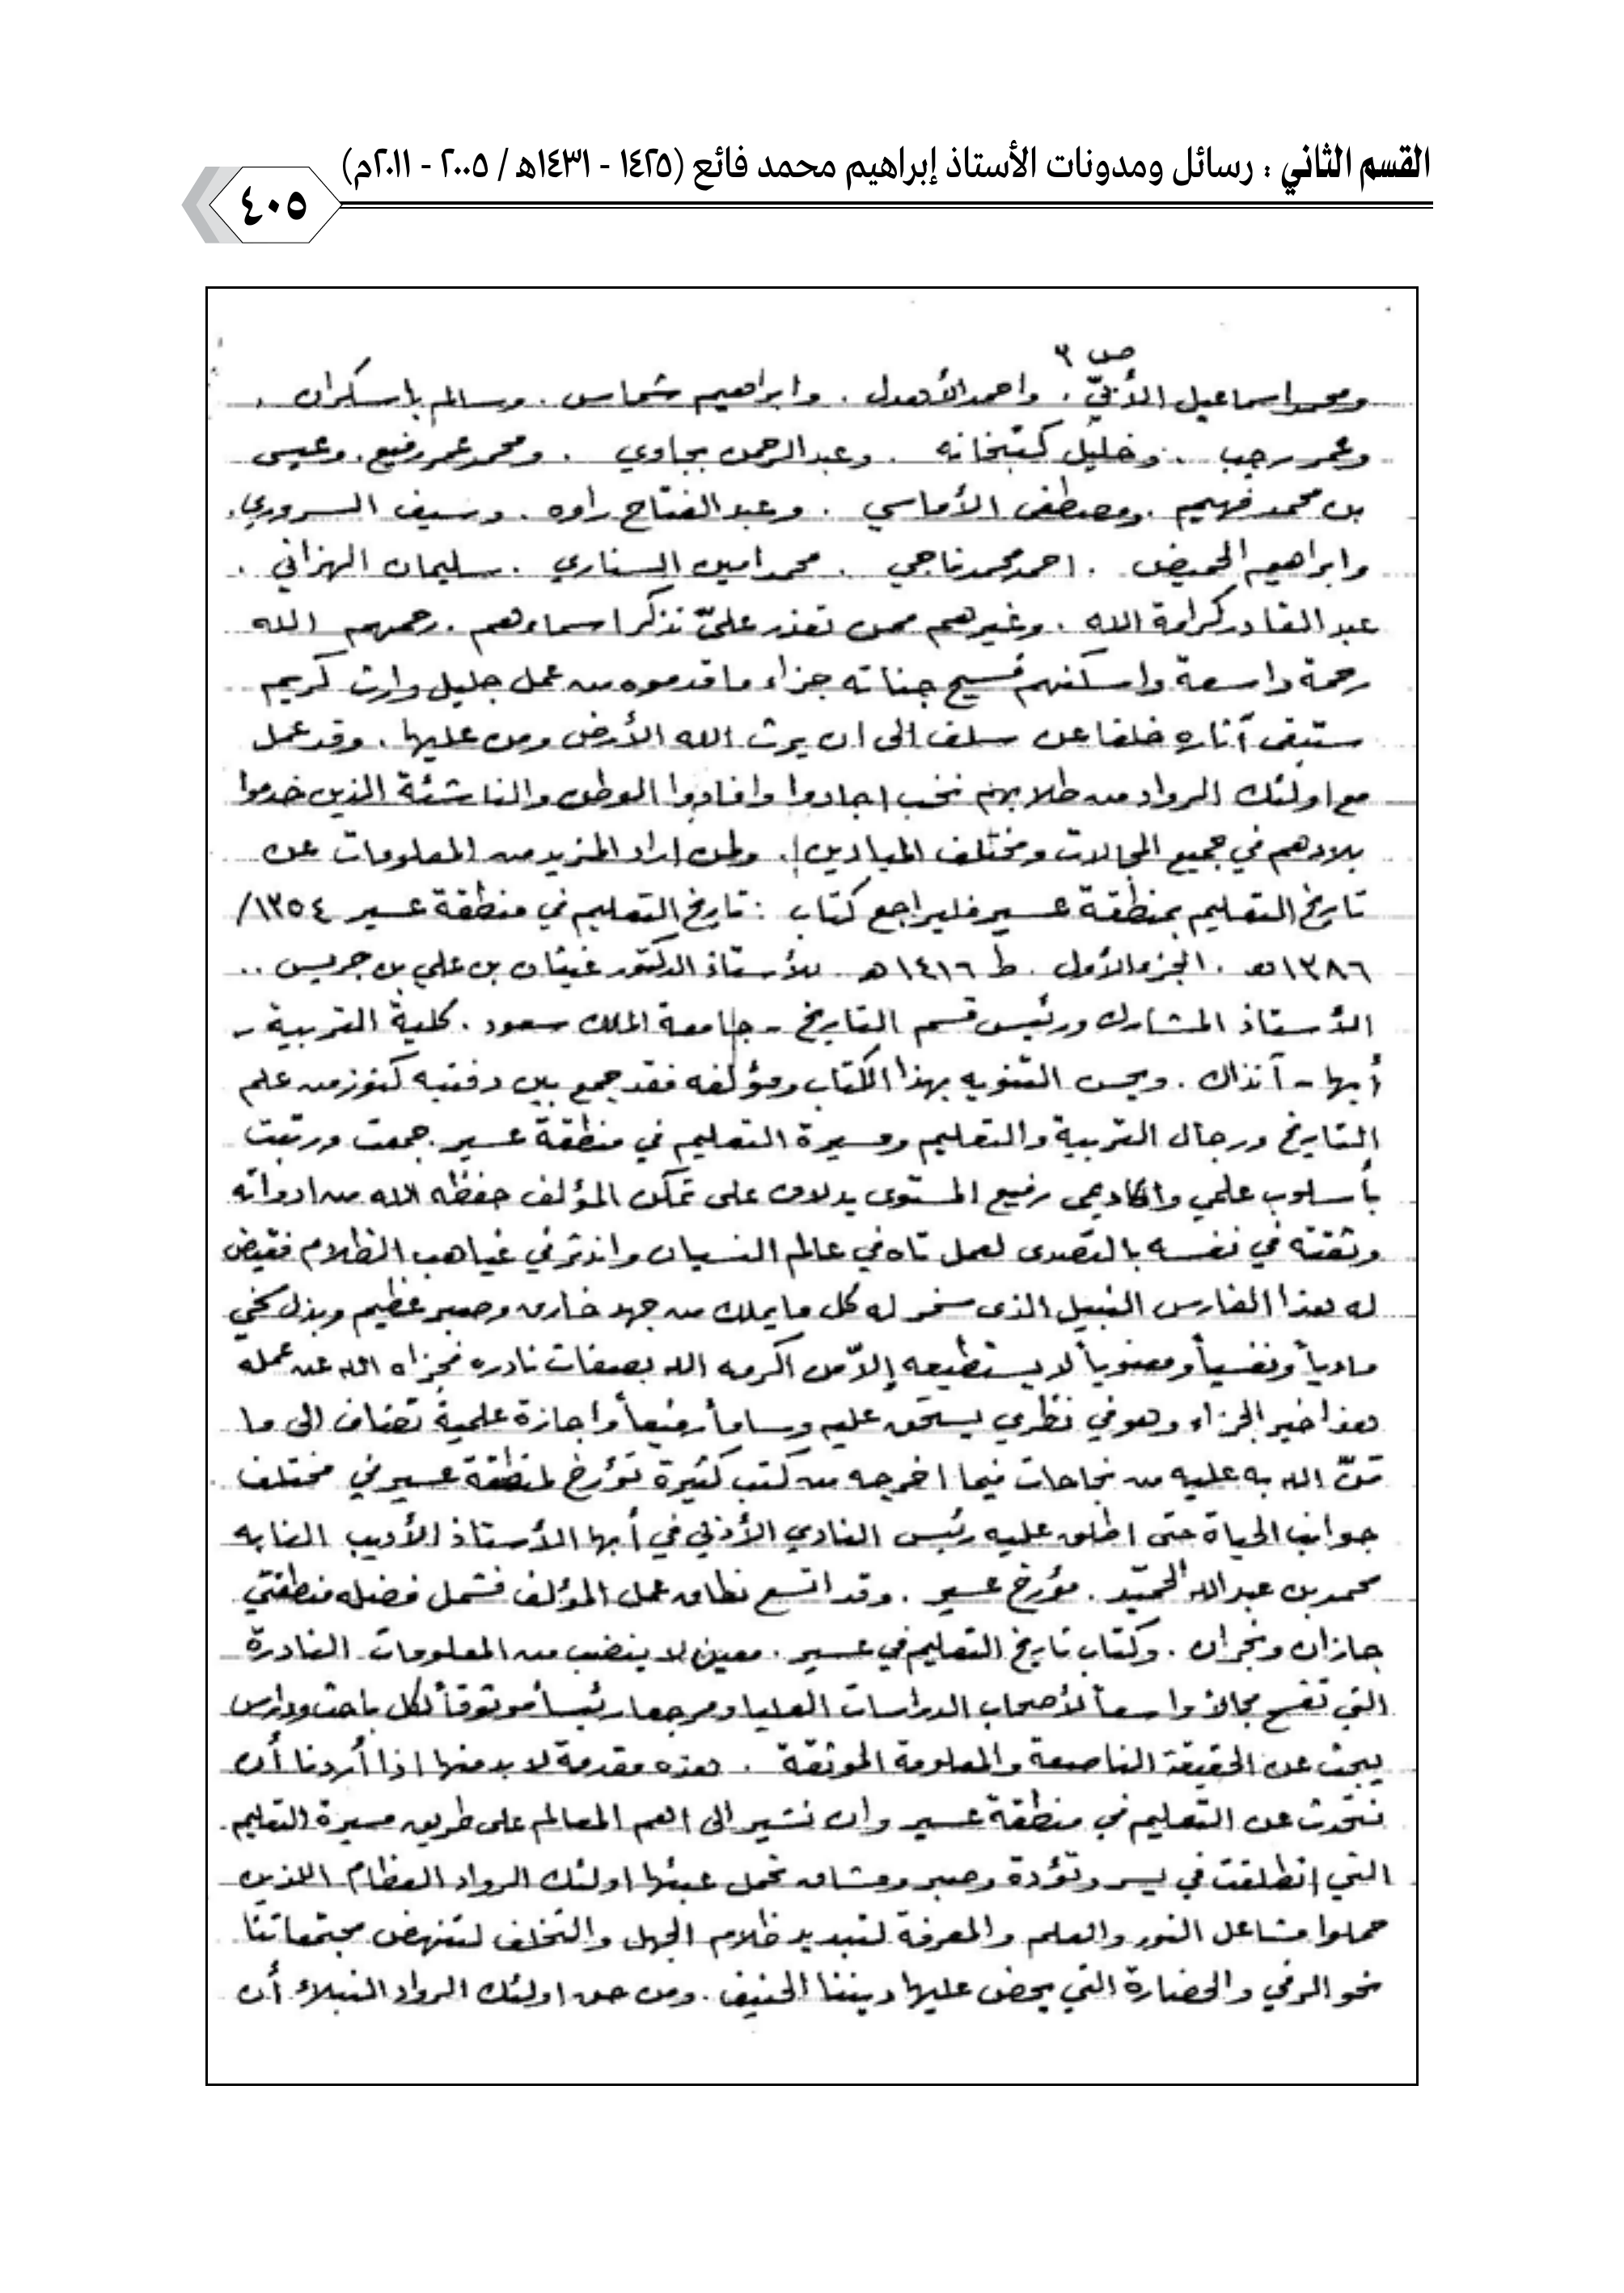 القسم الثاني : رسائل ومدونات الأستاذ إبراهيم محمد فائع (١٤٢٥ - ١٤٣١هـ / ٢٠٠٥ - ٢٠١١م)
٤٠٥
ص ٣
ومحمد اسماعيل الأبّيّ . واحمد الأهدل . وابراهيم شماس . وسالم باسكران .
وعمر رجب . وخليل كتبخانه . وعبدالرحمن بجاوي . ومحمد عمر رفيع . وعيسى
بن محمد فهيم . ومصطفى الأماسي . وعبد الفتاح راوه . وسيف السروري .
وابراهيم الحميض . احمد محمد ناجي . محمد امين السناري . سليمان الهزاني .
عبد القادر كرامة الله . وغيرهم ممن تعذر عليّ تذكر اسماءهم . رحمهم الله
رحمة واسعة واسكنهم فسيح جناته جزاء ما قدموه من عمل جليل وارث كريم
ستبقى آثاره خلفا عن سلف الى ان يرث الله الأرض ومن عليها . وقد عمل
مع اولئك الرواد من طلابهم نخب اجادوا وافادوا الوطن والناشئة الذين خدموا
بلادهم في جميع المجالات ومختلف الميادين . ولمن اراد المزيد من المعلومات عن
تاريخ التعليم بمنطقة عسير فليراجع كتاب : تاريخ التعليم في منطقة عسير ١٣٥٤/
١٣٨٦هـ . الجزء الأول . ط ١٤١٦هـ . للأستاذ الدكتور غيثان بن علي بن جريس ..
الأستاذ المشارك ورئيس قسم التاريخ - جامعة الملك سعود . كلية التربية -
أبها - آنذاك . ويحسن التنويه بهذا الكتاب ومؤلفه فقد جمع بين دفتيه كنوز من علم
التاريخ ورجال التربية والتعليم ومسيرة التعليم في منطقة عسير . جمعت ورتبت
بأسلوب علمي واكاديمي رفيع المستوى يدلان على تمكن المؤلف حفظه الله من ادواته
وثقته في نفسه بالتصدى لعمل تاه في عالم النسيان واندثر في غياهب الظلام فقيض
له هذا الفارس النبيل الذى سخر له كل ما يملك من جهد خارق وصبر عظيم وبذل سخي
مادياً ونفسياً ومعنوياً لا يستطيعه إلاّ من اكرمه الله بصفات نادره فجزاه الله عن عمله
هذا خير الجزاء وهو في نظري يستحق عليه وساماً رفيعاً واجازة علمية تضاف الى ما
منّ الله به عليه من نجاحات فيما اخرجه من كتب كثيرة تؤرخ لمنطقة عسير في مختلف
جوانب الحياة حتى اطلق عليه رئيس النادي الأدبي في أبها الأستاذ الأديب النابه
محمد بن عبدالله الحميّد . مؤرخ عسير . وقد اتسع نطاق عمل المؤلف فشمل فضله منطقتي
جازان ونجران . وكتاب تاريخ التعليم في عسير . معين لا ينضب من المعلومات النادرة
التي تفسح مجالاً واسعاً لأصحاب الدراسات العليا ومرجعا رئيساً موثوقاً لكل باحث ودارس
يبحث عن الحقيقة الناصعة والمعلومة الموثقة . هذه مقدمة لا بد منها اذا أردنا أن
نتحدث عن التعليم في منطقة عسير وان نشير الى اهم المعالم على طريق مسيرة التعليم .
التي انطلقت في يسر وتؤدة وصبر ومشاق تحمل عبئها اولئك الرواد العظام اللذين
حملوا مشاعل النور والعلم والمعرفة لتبديد ظلام الجهل والتخلف لتنهض مجتمعاتنا
نحو الرقي والحضارة التي يحض عليها ديننا الحنيف . ومن حق اولئك الرواد النبلاء أن